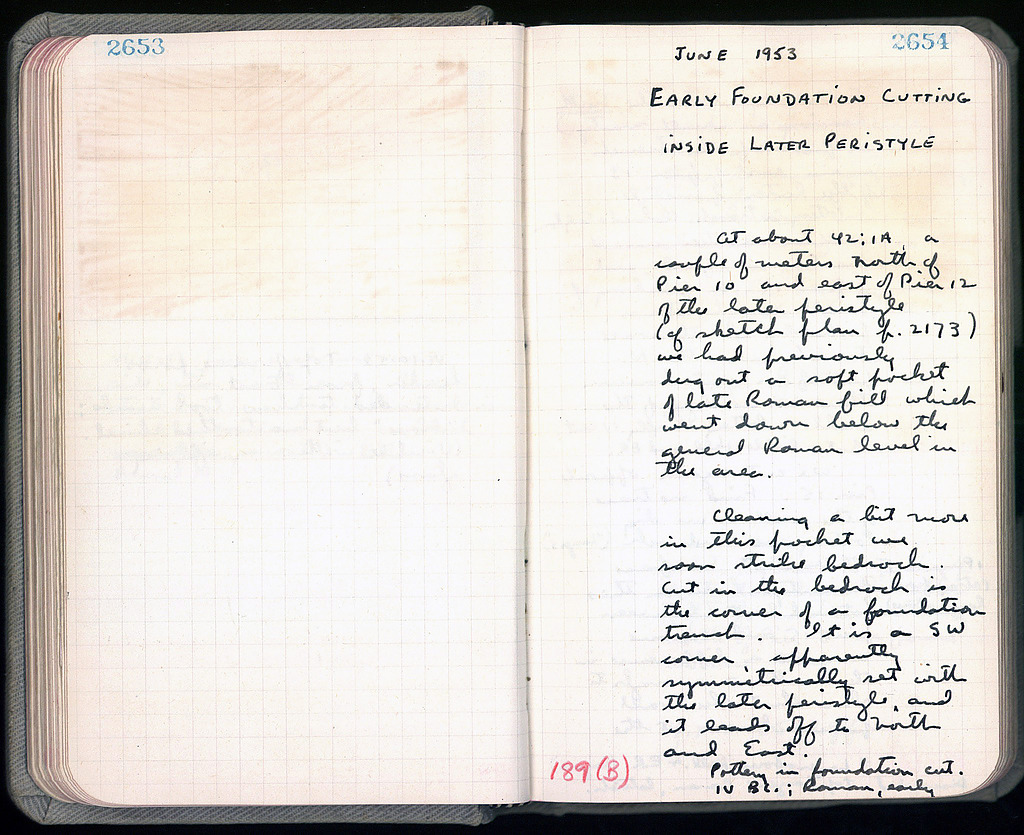 2653
2654
JUNE 1953
EARLY FOUNDATION CUTTING
INSIDE LATER PERISTYLE
At about 42;1A, a
couple of meters north of
Pier 10 and east of Pier 12
of the later peristyle
(cf sketch plan p. 2173)
we had previously
dug out a soft pocket
of late Roman fill which
went down below the
general Roman level in
the area.
Cleaning a bit more
in this pocket we
soon strike bedrock.
Cut in the bedrock is
the corner of a foundation
trench. It is a SW
corner, apparently
symmetrically set with
the later peristyle, and
it leads off to north
and East.
Pottery in foundation cut.
IV BC.; Roman, early
189 (B)